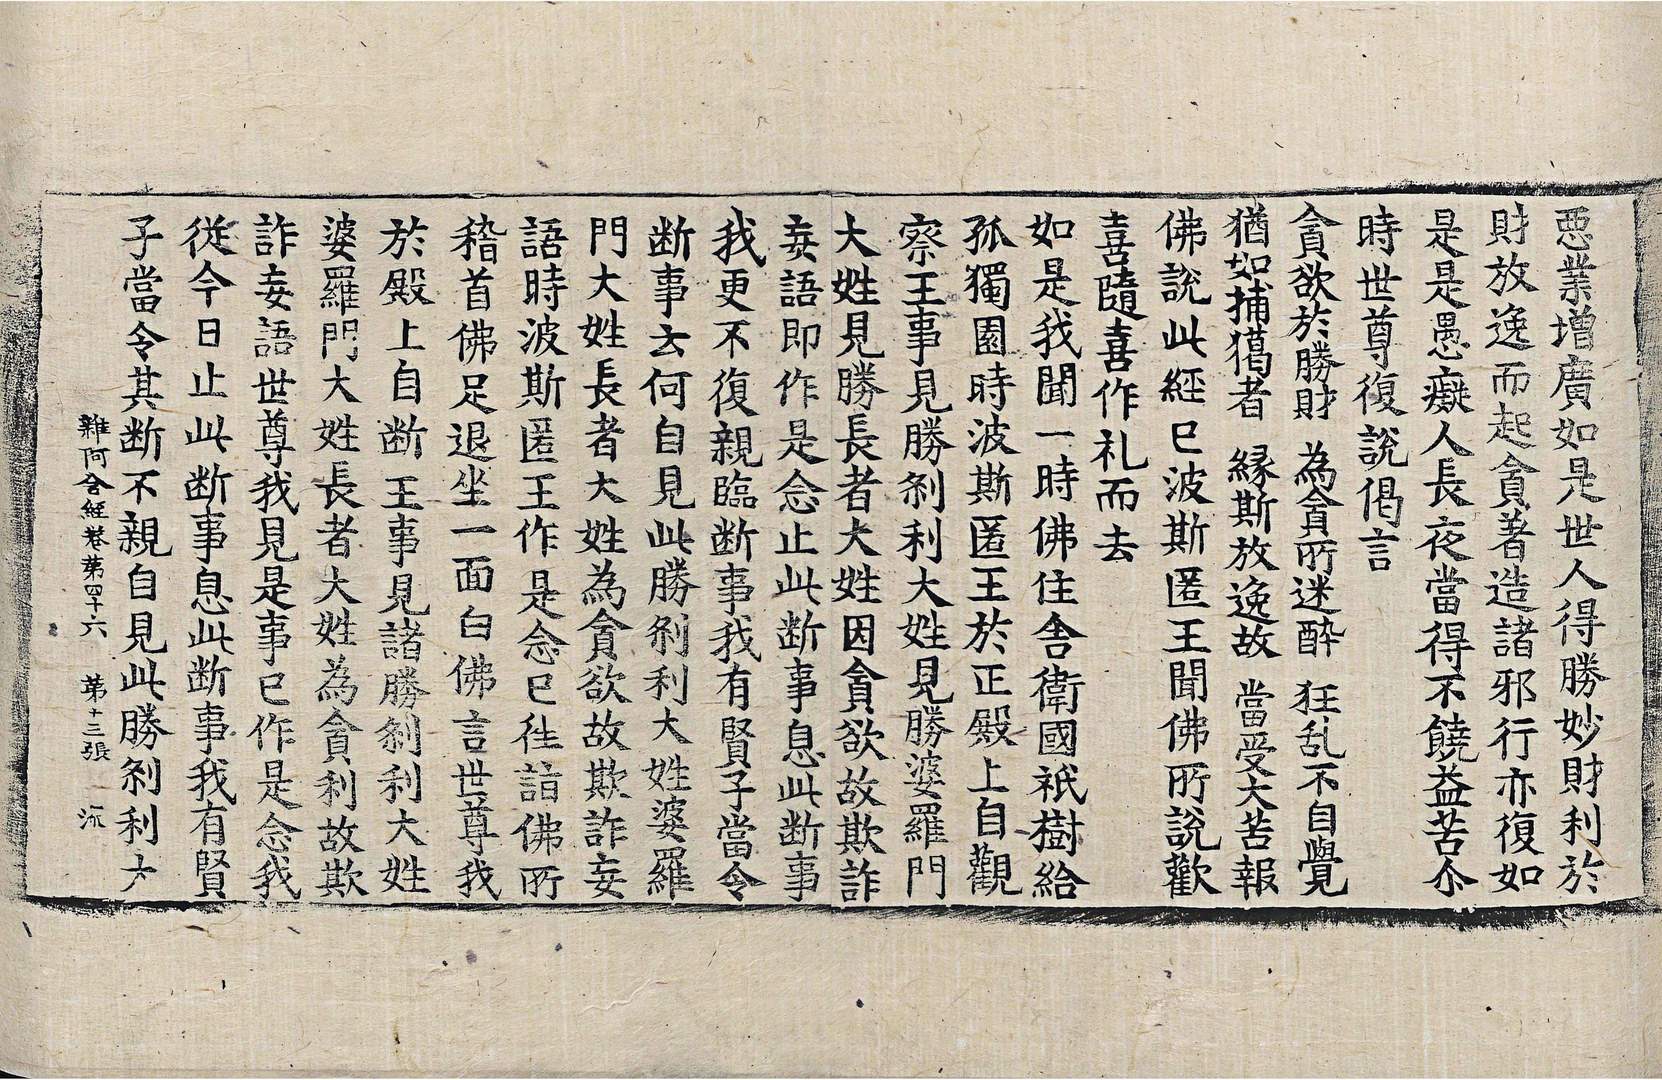 惡業增廣如是世人得勝妙財利於
財放逸而起貪著造諸邪行亦復如
是是愚癡人長夜當得不饒益苦尒
時世尊復說偈言
貪欲於勝財　為貪所迷醉　狂乱不自覺
猶如捕獦者　緣斯放逸故　當受大苦報
佛說此經已波斯匿王聞佛所說歡
喜隨喜作礼而去
如是我聞一時佛住舍衛國祇樹給
孤獨園時波斯匿王於正殿上自觀
察王事見勝剎利大姓見勝婆羅門
大姓見勝長者大姓因貪欲故欺詐
妄語即作是念止此断事息此断事
我更不復親臨断事我有賢子當令
断事云何自見此勝剎利大姓婆羅
門大姓長者大姓為貪欲故欺詐妄
語時波斯匿王作是念已往詣佛所
稽首佛足退坐一面白佛言世尊我
於殿上自断王事見諸勝剎利大姓
婆羅門大姓長者大姓為貪利故欺
詐妄語世尊我見是事已作是念我
從今日止此断事息此断事我有賢
子當令其断不親自見此勝剎利大
雜阿含經卷第四十六　第十三張